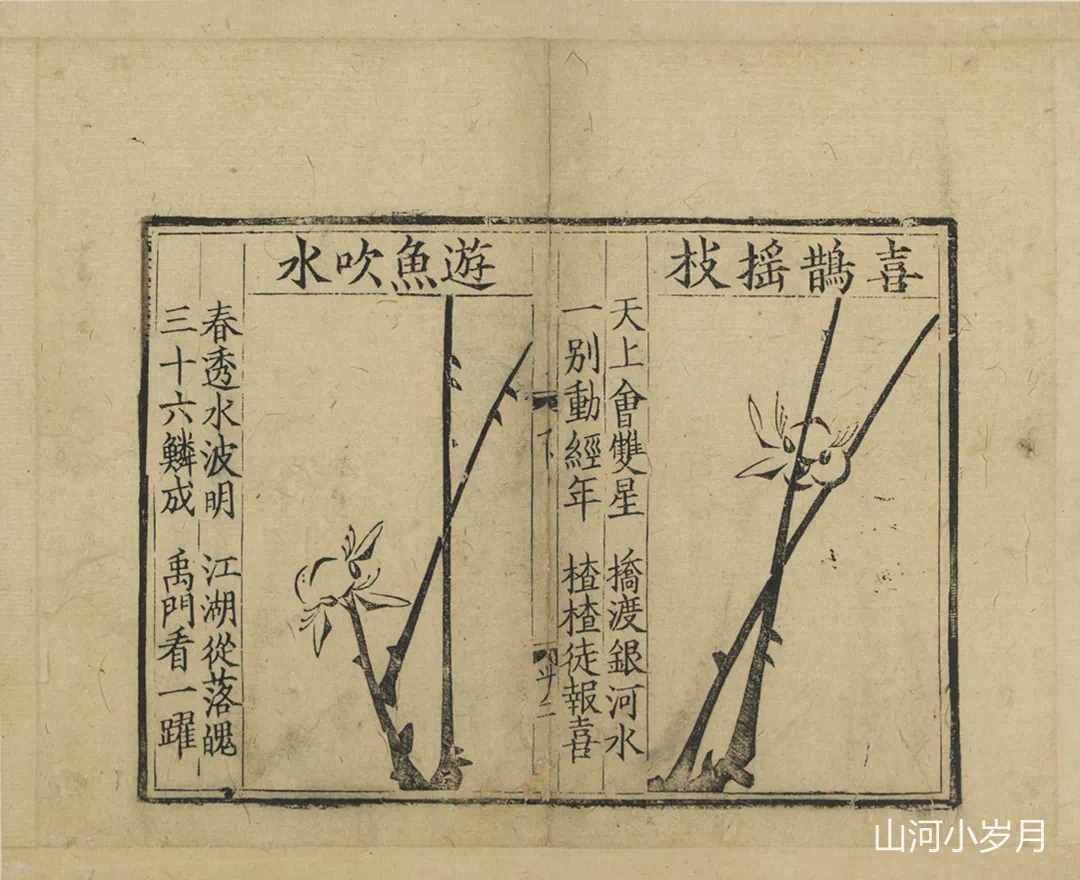 喜鵲摇枝
天上會雙星 撟渡銀河水
一别動經年 楂楂徒報喜
下
遊魚吹水
春透水波明 江湖從落魄
三十六鱗成 禹門看一躍
山河小岁月